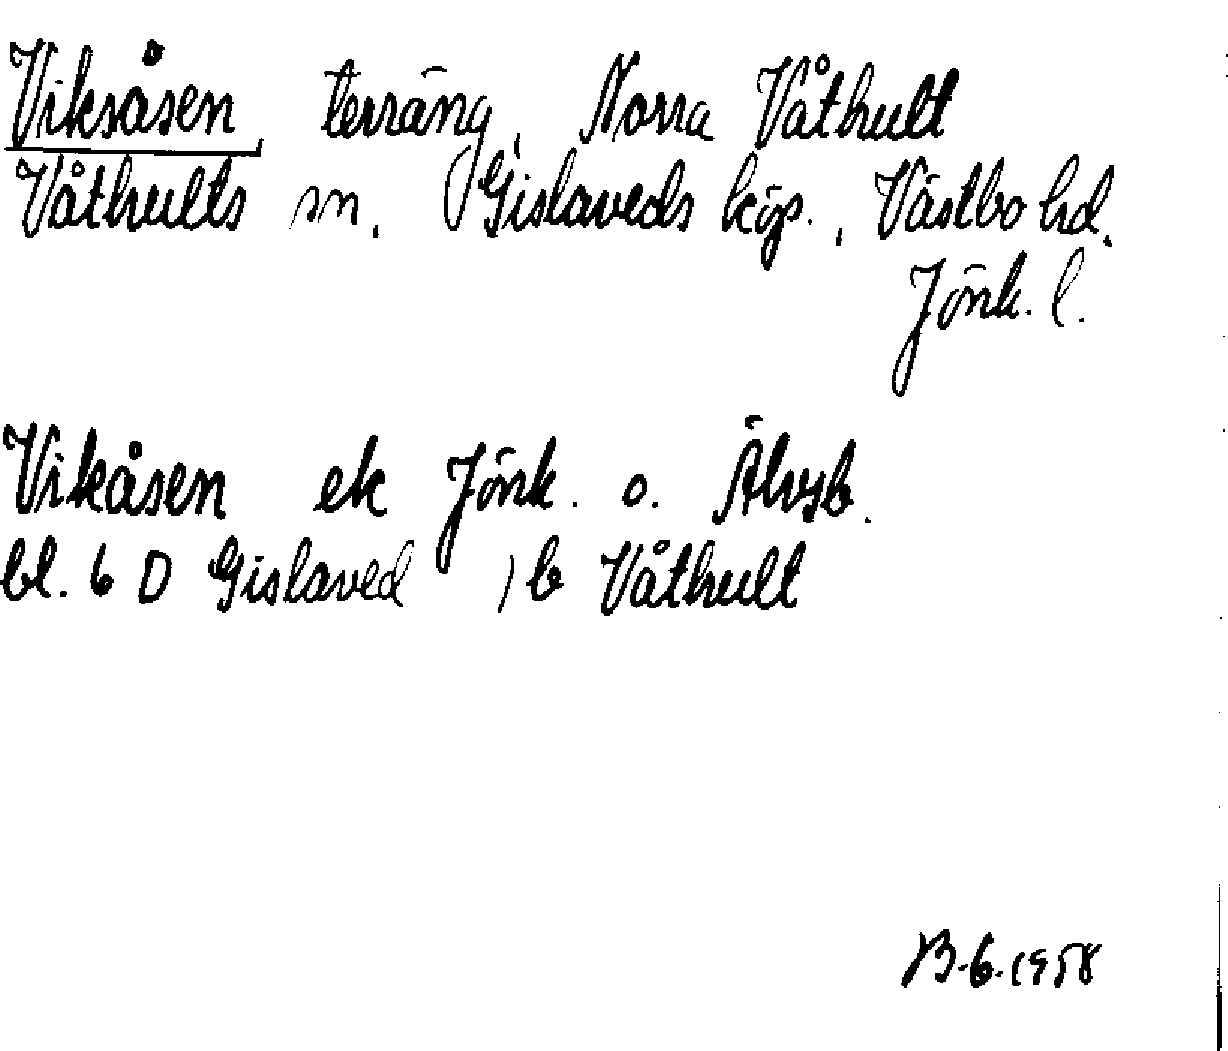 Viksåsen, terräng, Norra Våthult
Våthults sn, Gislaveds köp., Västbo hd.
Jönk. l.
Vikåsen ek Jönk. o. Älvsb.
bl. 6 D Gislaved, b Våthult
B-6.1958